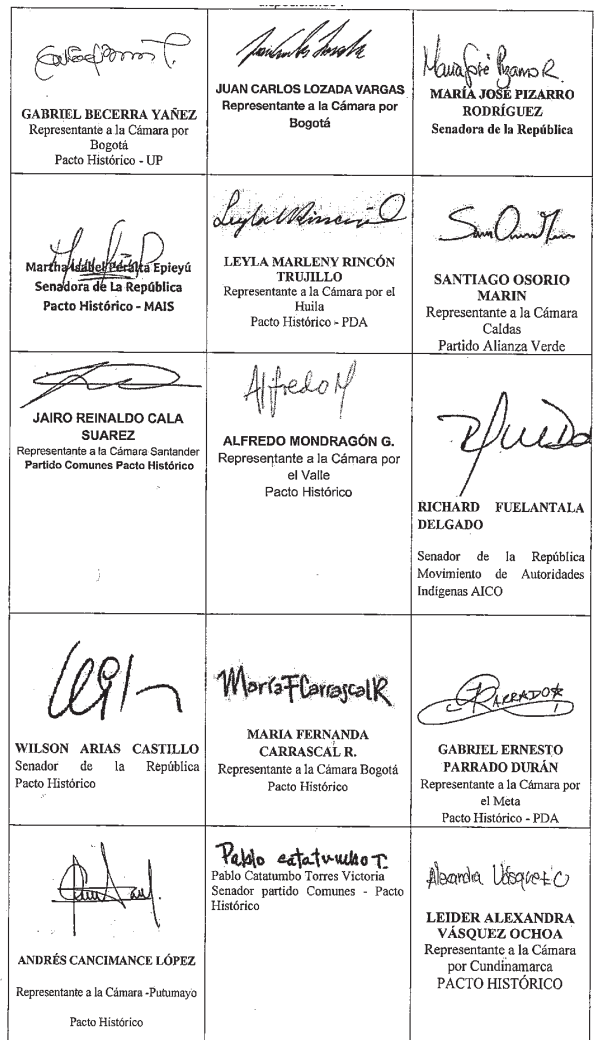 María José Pizarro R.
GABRIEL BECERRA YAÑEZ
Representante a la Cámara por
Bogotá
Pacto Histórico - UP
JUAN CARLOS LOZADA VARGAS
Representante a la Cámara por
Bogotá
MARÍA JOSÉ PIZARRO
RODRÍGUEZ
Senadora de la República
Martha Isabel Peralta Epieyú
Senadora de La República
Pacto Histórico - MAIS
Leyla Rincón
LEYLA MARLENY RINCÓN
TRUJILLO
Representante a la Cámara por el
Huila
Pacto Histórico - PDA
SANTIAGO OSORIO
MARIN
Representante a la Cámara
Caldas
Partido Alianza Verde
JAIRO REINALDO CALA
SUAREZ
Representante a la Cámara Santander
Partido Comunes Pacto Histórico
Alfredo M
ALFREDO MONDRAGÓN G.
Representante a la Cámara por
el Valle
Pacto Histórico
RICHARD FUELANTALA
DELGADO
Senador de la República
Movimiento de Autoridades
Indígenas AICO
WILSON ARIAS CASTILLO
Senador de la República
Pacto Histórico
María F Carrascal R
MARIA FERNANDA
CARRASCAL R.
Representante a la Cámara Bogotá
Pacto Histórico
PARRADO
GABRIEL ERNESTO
PARRADO DURÁN
Representante a la Cámara por
el Meta
Pacto Histórico - PDA
ANDRÉS CANCIMANCE LÓPEZ
Representante a la Cámara -Putumayo
Pacto Histórico
Pablo catatumbo T.
Pablo Catatumbo Torres Victoria
Senador partido Comunes - Pacto
Histórico
Alexandra Vásquez O
LEIDER ALEXANDRA
VÁSQUEZ OCHOA
Representante a la Cámara
por Cundinamarca
PACTO HISTÓRICO